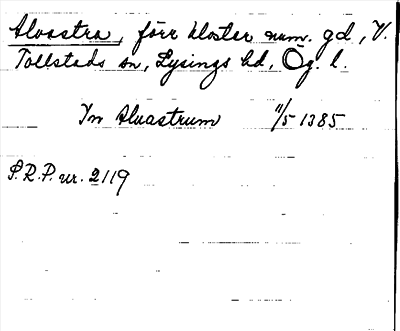 Alvastra, förr kloster num. gd, V.
Tollstads sn, Lysings hd, Ög. l.
In Aluastrum 11/5 1385
S.R.P. nr. 2119